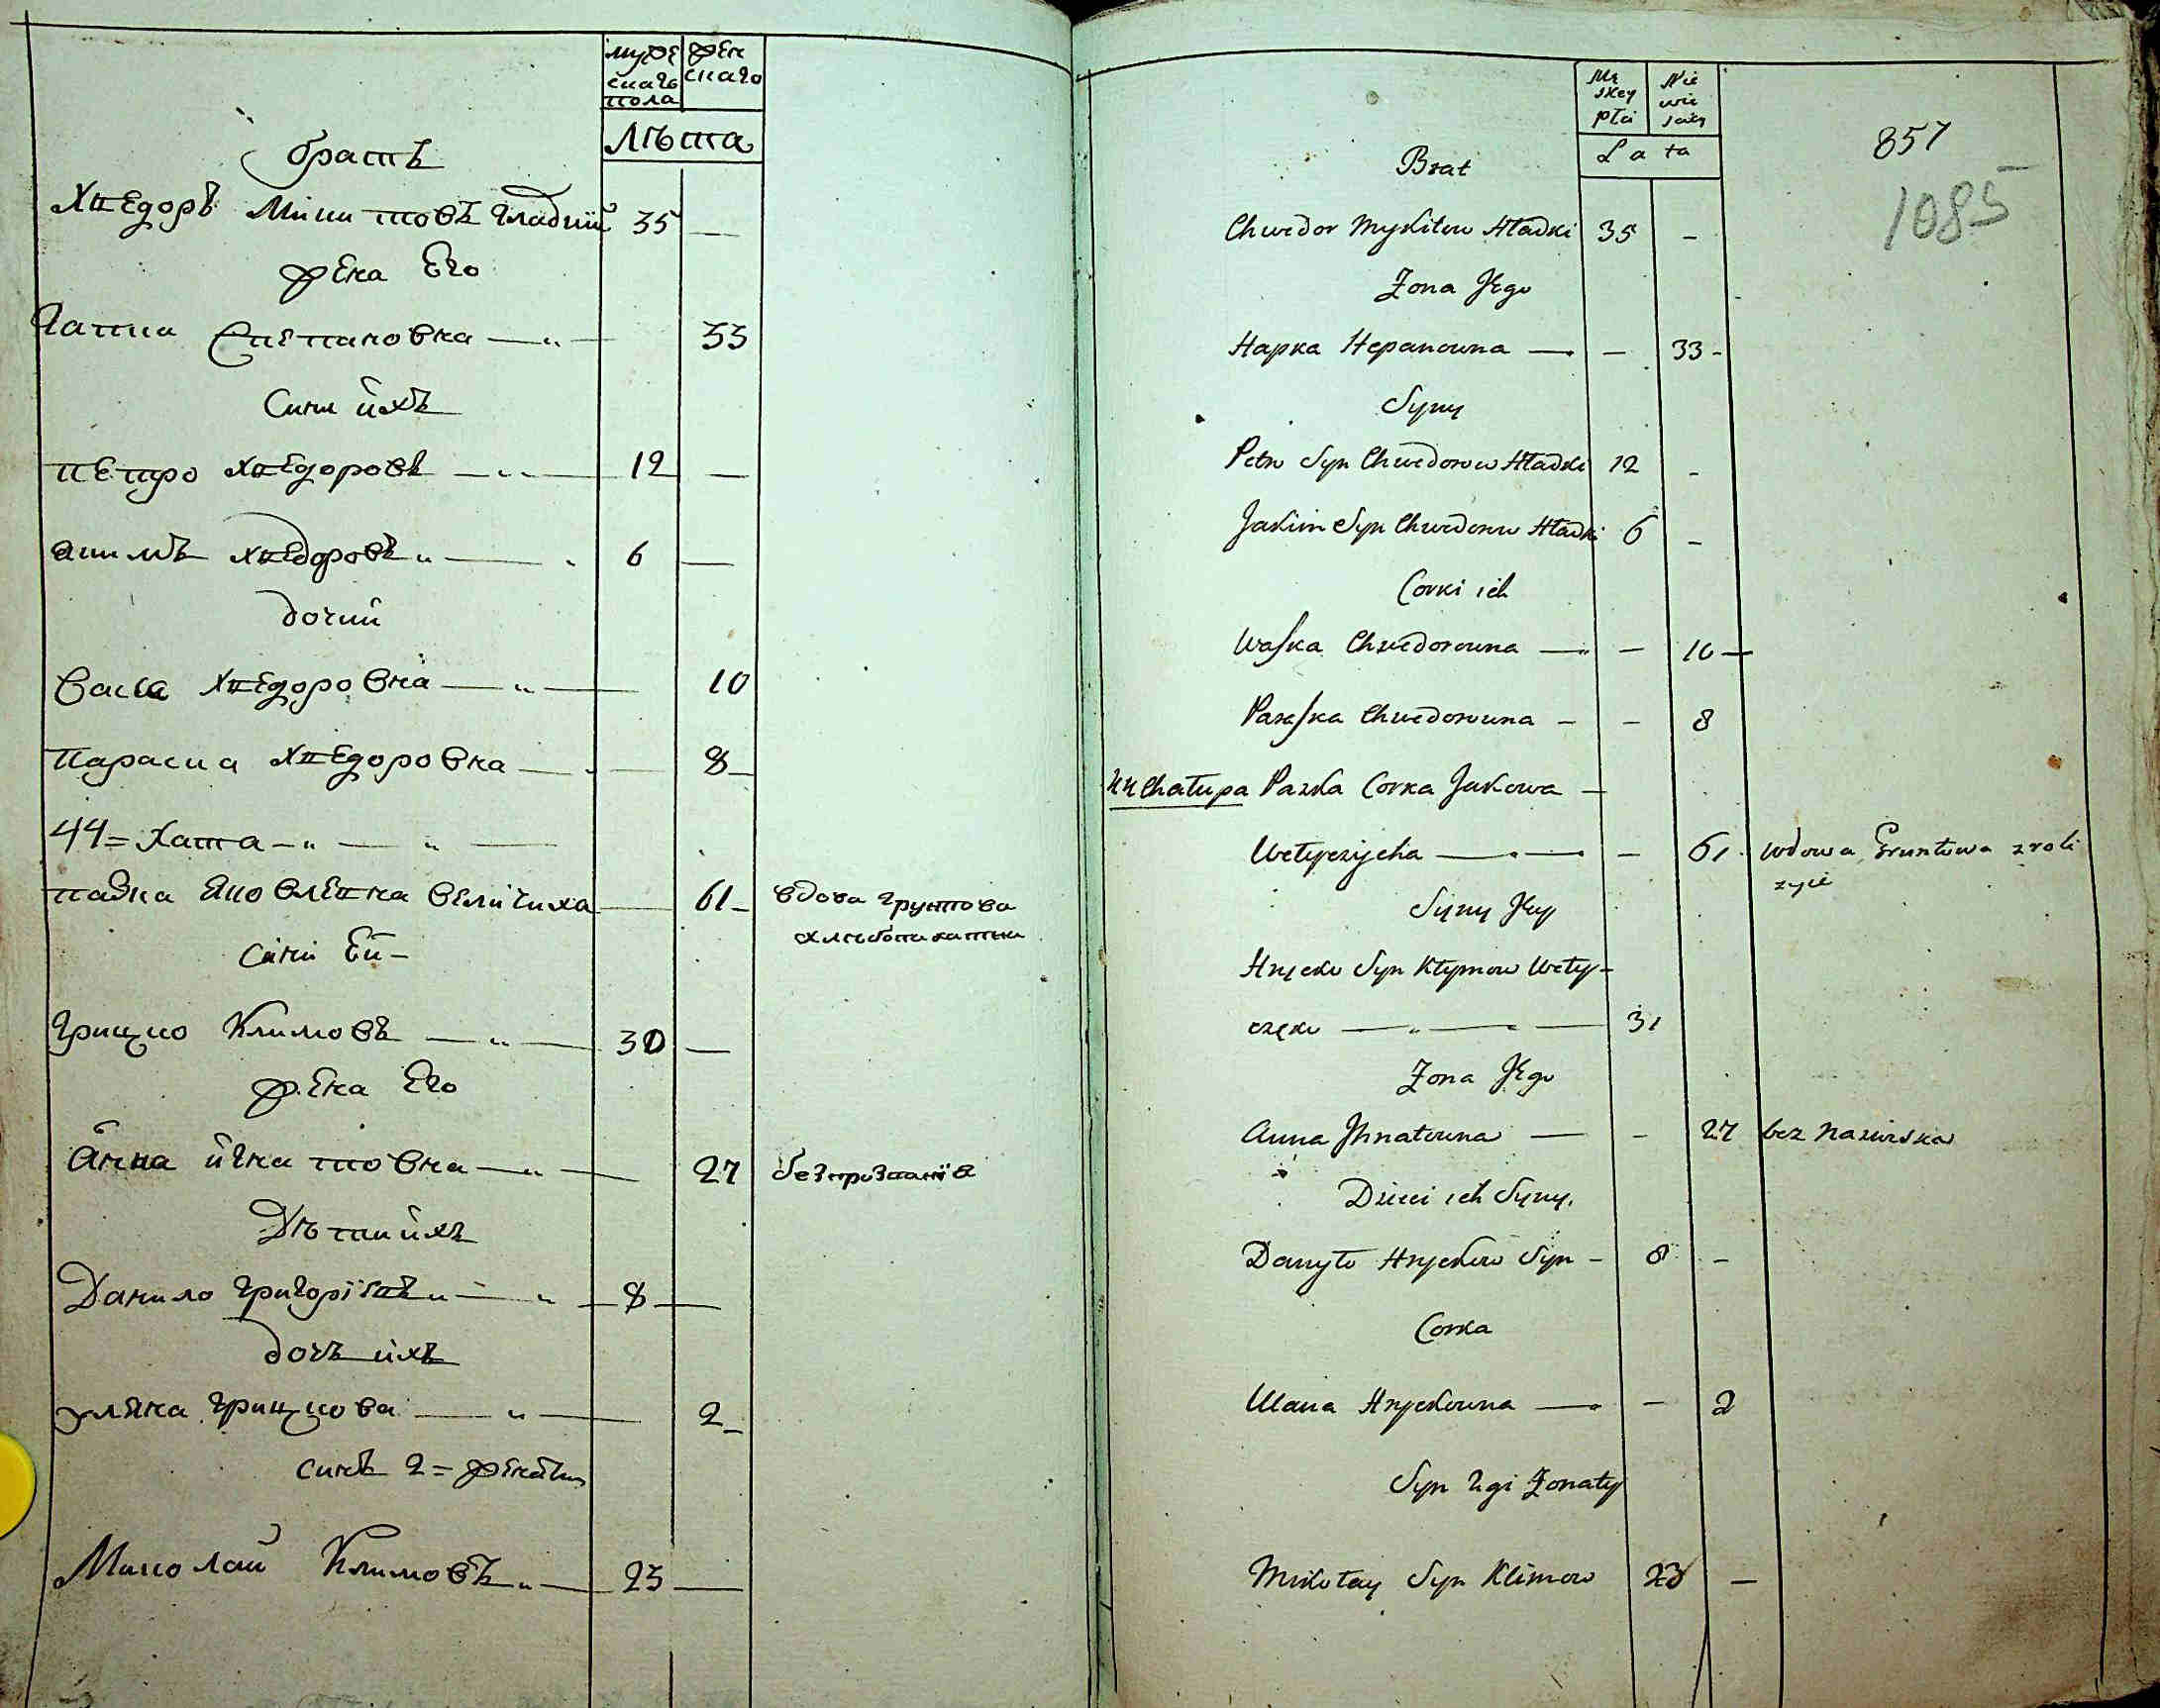 муже
скаго
пола
жен
скаго
Лѣта
братъ
Хведоръ Микитовъ Гладкий 35 —
жена Его
Гапка Степановка — „ — 33
Сини ихъ
Петро Хведоровъ — „ — 12 —
Якимъ Хведоровъ „ — 6 —
дочки
Васка Хведоровна — „ — 10
Параска Хведоровка — „ — 8 —
44 = Хата — „ — „ —
Пазка Яковлевка Величиха — 61 — вдова грунтова
хлѣбопашатни
Сини Еи —
Грицко Климовъ — „ — 30 —
жена Его
Анна Игнатовна — „ — 27 безпрозванія
Дѣти ихъ
Данило Григорівъ „ — „ — 8 —
дочъ ихъ
Уляна Грицкова — „ — 2 —
синъ 2 = женатъ
Миколай Климовъ „ — 23 —
Mę
skey
płci
Nie
wie
sciey
Lata
857
1085
Brat
Chwedor Mykitow Hładki 35 –
Zona Jego
Hapka Stepanowna — – 33 –
Syny
Petro Syn Chwedorow Hładki 12 –
Jakim Syn Chwedorow Hładki 6 –
Corki ich
Waska Chwedorowna — – 10 —
Paraska Chwedorowna – – 8
44 Chałupa Pazka Corka Jakowa –
Wełyczycha — – 61 wdowa Gruntowa z roli
zyie
Syny Jey
Hrycko Syn Kłymow Weły-
częko — „ — „ — 31
Zona Jego
Anna Jhnatowna — – 27 bez nazwiska
Dzieci ich Syny.
Danyło Hryckow Syn – 8 –
Corka
Ulana Hryckowna — – 2
Syn 2gi Zonaty
Mikołay Syn Klimow 23 —